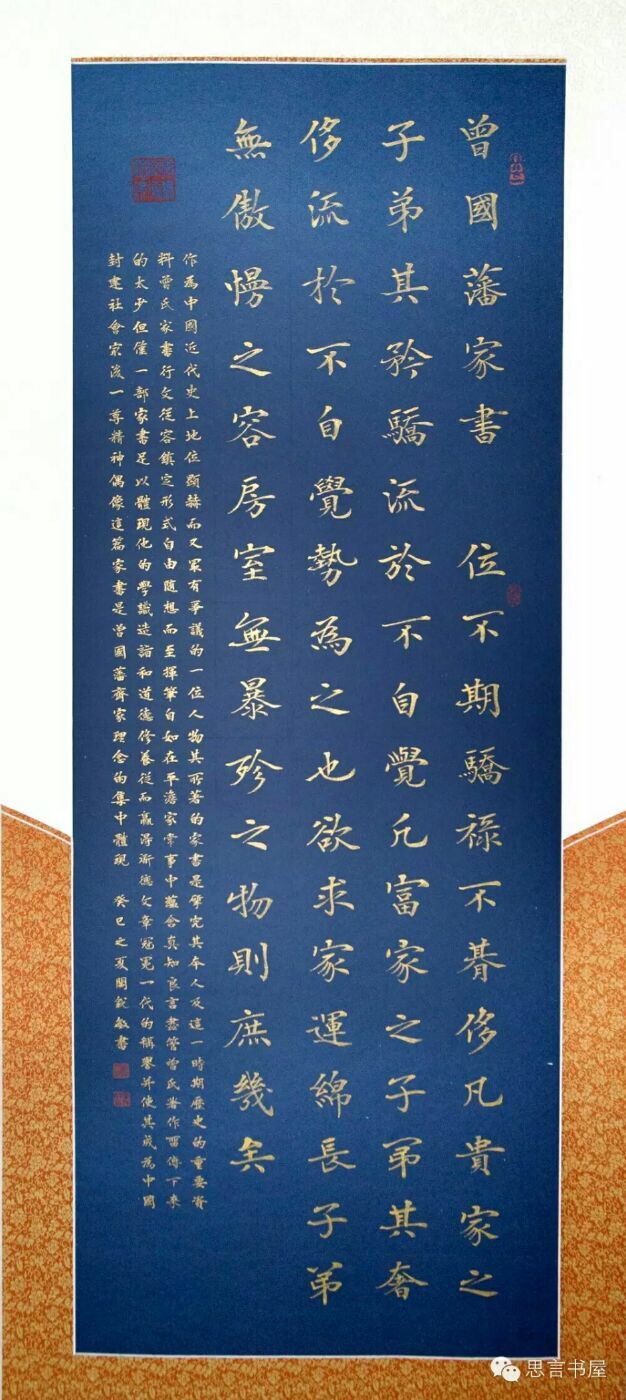 曾國藩家書 位不期驕祿不朞侈凡貴家之
子弟其矜驕流於不自覺凡富家之子弟其奢
侈流於不自覺勢為之也欲求家運綿長子弟
無傲慢之容房室無暴殄之物則庶幾矣
作為中國近代史上地位顯赫而又累有爭議的一位人物其所著的家書是研究其本人及這一時期歷史的重要資
料曾氏家書行文從容鎮定形式自由隨想而至揮筆自如在平澹家常事中蘊含真知良言盡管曾氏著作留傳下來
的太少但僅一部家書足以體現他的學識造詣和道德修養從而贏得德文章冠冕一代的稱譽并使其成為中國
封建社會最後一尊精神偶像這篇家書是曾國藩齊家理念的集中體現 癸巳之夏敏書
思言书屋